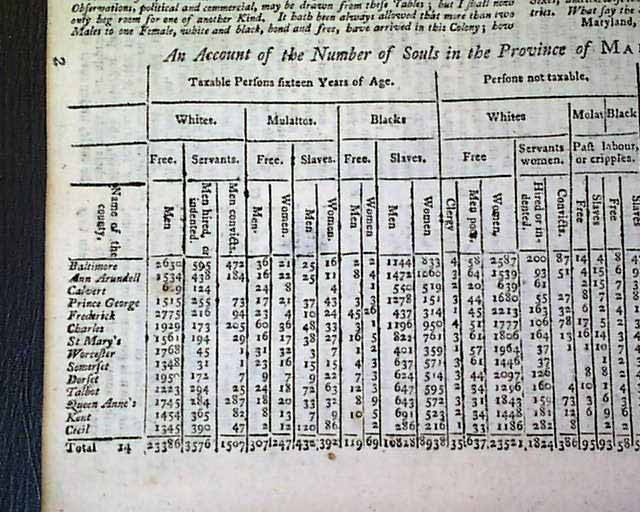 Observations, political and commercial, may be drawn from these Tables; but I shall now
only beg room for one of another Kind. It hath been always allowed that more than two
tries. What say the
Males to one Female, white and black, bond and free, have arrived in this Colony; how
Maryland,
2
An Account of the Number of Souls in the Province of MA
Taxable Persons sixteen Years of Age. Persons not taxable.
Whites. Mulattos. Blacks Whites Mulat Black
Free. Servants. Free. Slaves. Free. Slaves. Free Servants women. Past labour, or cripples.
Name of the county, Men Men hired, or indented. Men convicts. Men. Women. Men Women. Men Women Men Women Clergy Men poor. Women, Hired or indented. Convicts. Free Slaves Free Slaves
Baltimore 2630 595 472 36 21 25 16 2 2 1144 833 4 58 2587 200 87 14 4 8
Ann Arundell 1534 438 184 16 22 25 11 8 4 1472 1260 3 64 1539 93 51 4 15 6
Calvert 124 24 8 4 1 550 519 2 20 639 61 2 15 7
Prince George 1515 255 73 17 21 37 43 3 3 1278 151 3 44 1680 55 27 8 7 2
Frederick 2775 216 94 23 4 10 24 45 26 437 314 1 45 2213 163 32 6 2 4
Charles 1929 173 205 60 36 48 33 3 1 1196 950 4 51 1777 106 78 17 5 2
St Mary's 1561 194 29 16 17 38 27 16 5 822 761 3 61 1806 164 13 16 14 3
Worcester 1768 45 1 31 32 3 7 1 2 401 359 1 57 1964 37 1 1 10 7
Somerset 1348 31 1 23 16 15 15 4 3 637 571 3 61 1446 37
Dorset 1950 172 7 9 7 9 22 7 3 624 514 3 44 2097 126 8 8 2
Talbot 1223 294 23 24 18 72 63 12 3 647 595 2 34 1296 160 4 10 1 4
Queen Anne's 1745 284 287 18 20 33 32 8 9 643 572 3 31 1843 159 73 3 6 3
Kent 1454 365 82 8 13 7 9 10 5 691 523 2 34 1448 181 12 6 9 6
Cecil 1345 390 47 2 12 120 86 2 286 216 1 33 1186 282 8 2 2
Total 14 23386 3576 1507 307 247 432 392 119 69 10818 8938 35 637 23521 1824 386 95 93 58